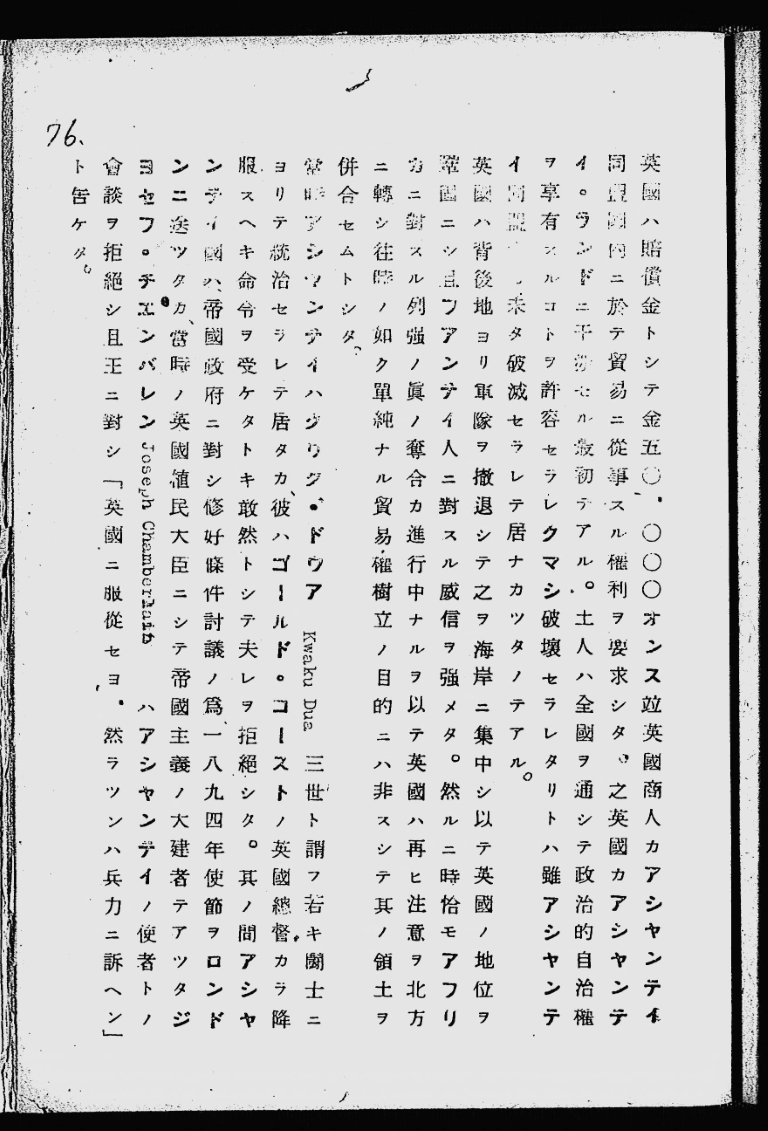 76.
英國ハ賠償金トシテ金五〇.〇〇〇オンス竝英國商人カアシヤンテイ
同盟國內ニ於テ貿易ニ從事スル權利ヲ要求シタ。之英國カアシヤンテ
イ。ランドニ干渉セル最初テアル。土人ハ全國ヲ通シテ政治的自治權
ヲ享有スルコトヲ許容セラレクマシ破壞セラレタリトハ雖アシヤンテ
イ同盟ハ未タ破滅セラレテ居ナカツタノテアル。
英國ハ背後地ヨリ軍隊ヲ撤退シテ之ヲ海岸ニ集中シ以テ英國ノ地位ヲ
鞏固ニシ且フアンテイ人ニ對スル威信ヲ强メタ。然ルニ時恰モアフリ
カニ對スル列强ノ眞ノ奪合カ進行中ナルヲ以テ英國ハ再ヒ注意ヲ北方
ニ轉シ往時ノ如ク單純ナル貿易權樹立ノ目的ニハ非スシテ其ノ領土ヲ
併合セムトシタ、
當時アシヤンテイハクワク・ドウア Kwaku Dua 三世ト謂フ若キ鬪士ニ
ヨリテ統治セラレテ居タカ、彼ハゴールド。コーストノ英國總督カラ降
服スヘキ命令ヲ受ケタトキ敢然トシテ夫レヲ拒絕シタ。其ノ間アシヤ
ンテイ國ハ、帝國政府ニ對シ修好條件討議ノ爲、一八九四年使節ヲロンド
ンニ送ツタカ、當時ノ英國植民大臣ニシテ帝國主義ノ大建者テアツタジ
ヨセフ。チエンバレン Joseph Chamberlain ハアシヤンテイノ使者トノ
會談ヲ拒絕シ且王ニ對シ「英國ニ服從セヨ.然ラツンハ兵力ニ訴ヘン」
ト吿ケタ。